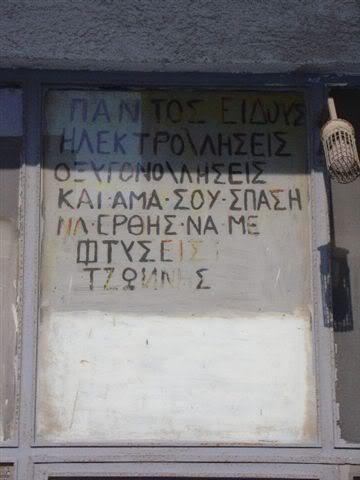 ΠΑΝΤΟΣ ΕΙΔΟΥΣ
ΗΛΕΚΤΡΟΛΛΗΣΕΙΣ
ΟΞΥΓΟΝΟΛΛΗΣΕΙΣ
ΚΑΙ·ΑΜΑ·ΣΟΥ·ΣΠΑΣΗ
ΝΑ·ΕΡΘΗΣ·ΝΑ·ΜΕ
ΦΤΥΣΕΙΣ
ΤΖΩΝΝΗΣ